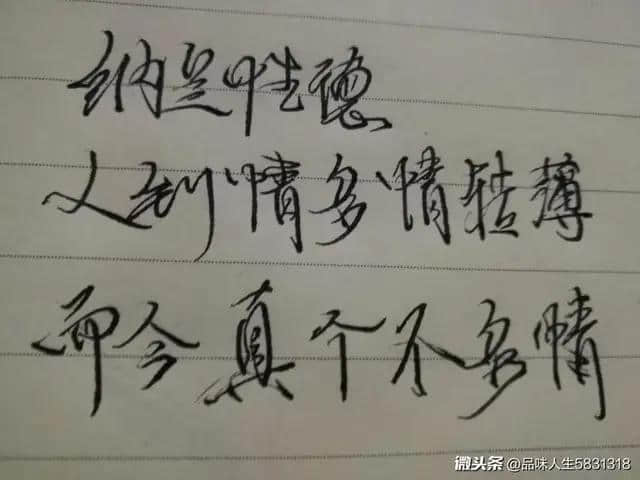 纳兰性德
人到情多情转薄
而今真个不多情
微头条 @品味人生5831318